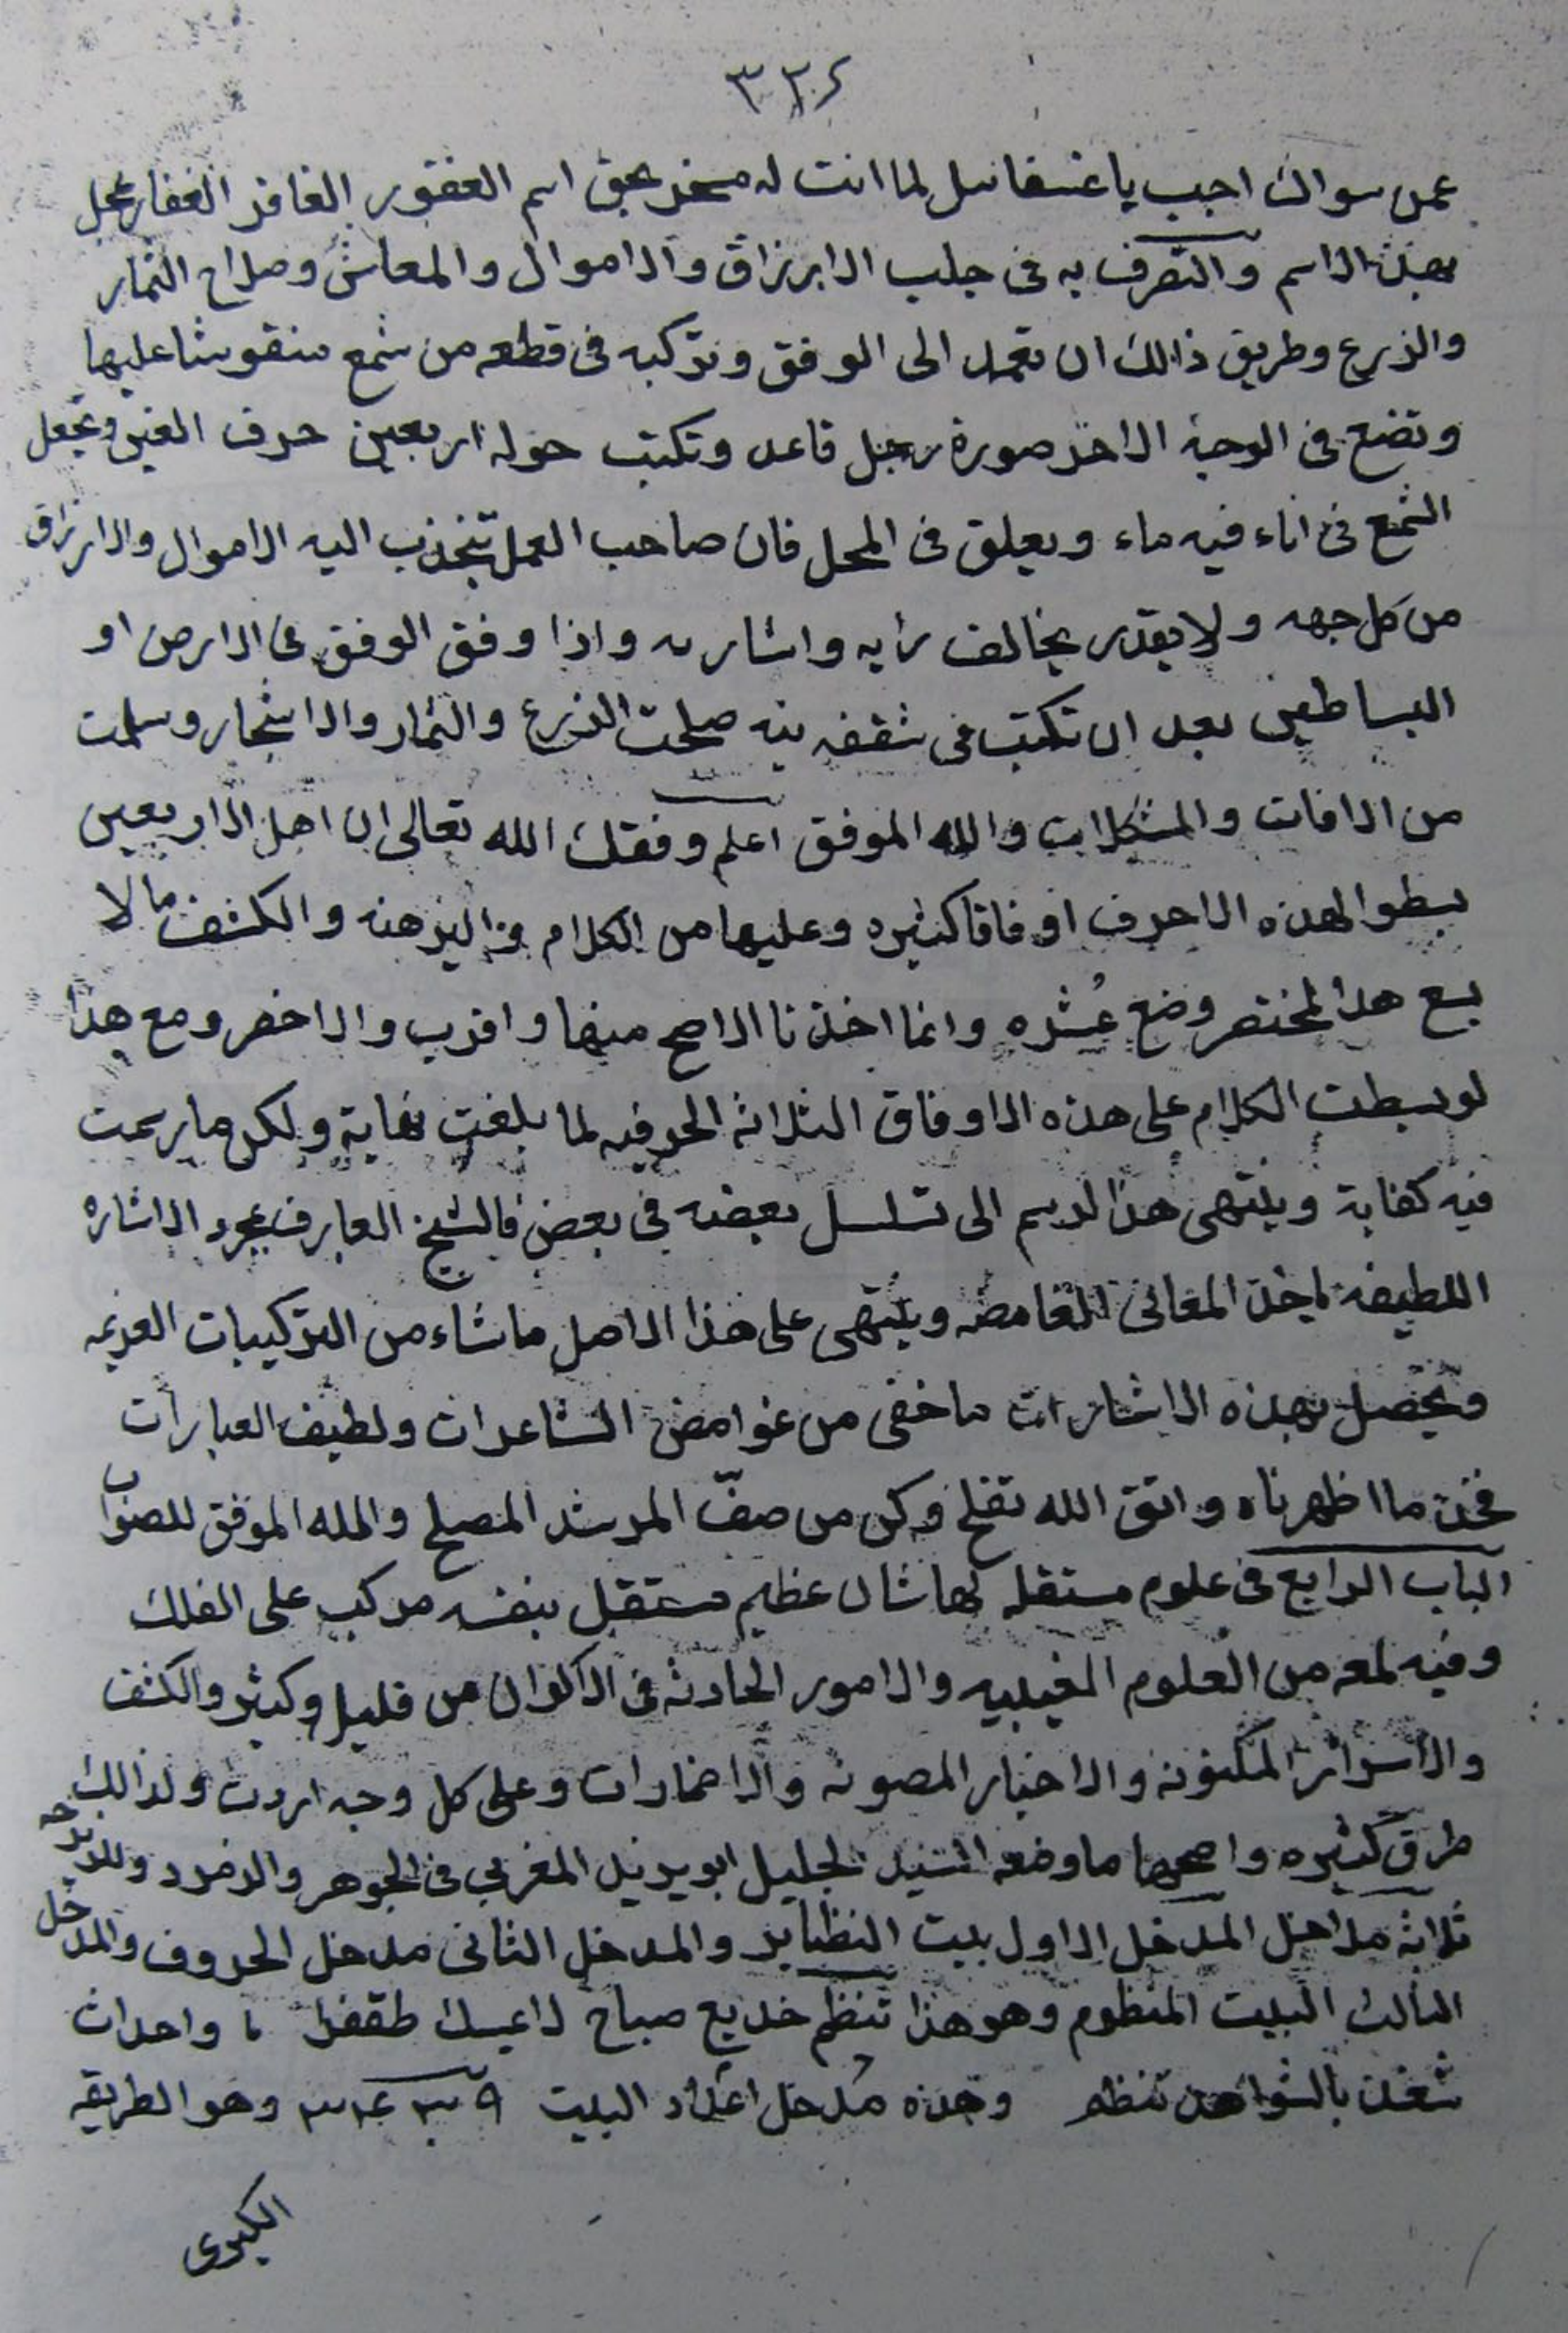 ٣٣٤
عمن سواك اجب يا غسفائيل لما انت له مسخر بحق اسم الغفور الغافر الغفار عجل
بهذا الاسم والتصرف به فى جلب الارزاق والاموال والمعاش وصلاح الثمار
والزرع وطريق ذالك ان تعمد الى الوفق وتركبه فى قطعه من شمع منقوشا عليها
وتضع فى الوجه الاخر صورة رجل قاعد وتكتب حوله اربعين حرف الغين وتجعل
الشمع فى اناء فيه ماء ويعلق فى المحل فان صاحب العمل تنجذب اليه الاموال والارزاق
من كل جهه ولا يقدر يخالف رأيه واشارته واذا وفق الوفق فى الارض او
البساطين بعد ان تكتب فى شقفه نيه صلحت الزرع والثمار والاشجار وسلمت
من الافات والمشكلات والله الموفق اعلم وفقك الله تعالى ان اهل الاربعين
بسطوا لهذه الاحرف اوفاقا كثيره وعليها من الكلام و البرهنه والكشف ما لا
يسع هذا المختصر وضع عُشره وانما اخذنا الاصح منها واقرب والاخصر ومع هذا
لو بسطت الكلام على هذه الاوفاق الثلاثه الحرفيه لما بلغت نهاية ولكن ما رسمت
فيه كفاية وينتهى هذا لرسم الى تسلسل بعضه فى بعض فالشيخ العارف بمجرد الاشاره
اللطيفه ياخذ المعانى الغامضه وينتهى على هذا الاصل ما شاء من التركيبات الغريبه
وتحصل بهذه الاشارات ما خفى من غوامض الشاعدات ولطيف العبارات
فخذ ما اظهرناه واتق الله تفلح وكن من صفّ المرشد المصلح والله الموفق للصواب
الباب الرابع فى علوم مستقله لها شان عظيم مستقل بنفسه مركب على الفلك
وفيه لمعه من العلوم الغيبيه والامور الحادثه فى الاكوان من قليل وكثير والكشف
والاسرائر المكنونه والاخبار المصونه والاضمارات وعلى كل وجه اردت ولذالك
طرق كثيره واصحها ما وضعه السيد لجليل ابويزيد المغربي فى الجوهر والدفرد وللزيرجه
ثلاثه مداخل المدخل الاول بيت النظاير والمدخل الثانى مدخل الحروف والمدخل
الثالث البيت المنظوم وهو هذا تنظم خديع صباح طقفذ واحداث
شغلت بالشواهد تنظم وهذه مدخل اعداد البيت وهو الطريقه
الكبرى